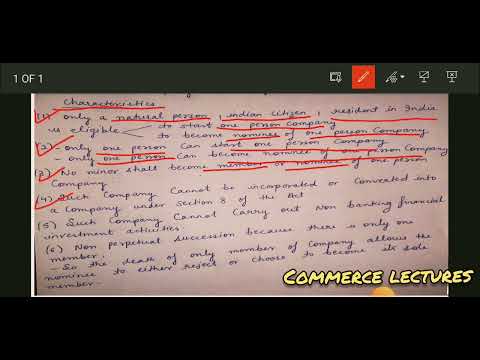 1 OF 1
Characteristics
(1) only a natural person, indian citizen, resident in India
is eligible to start one person company
to become nominee of one person company.
(2) - only one person can start one person company
- only one person can become nominee of one person company
(3) No minor shall become member or nominee of one person
company
(4) Such company cannot be incorporated or converted into
a company under section 8 of the Act
(5) Such company cannot carry out Non banking financial
investment activities.
(6) Non perpetual succession because there is only one
member.
- So the death of only member of company allows the
nominee to either reject or choose to become its sole
member.
COMMERCE LECTURES